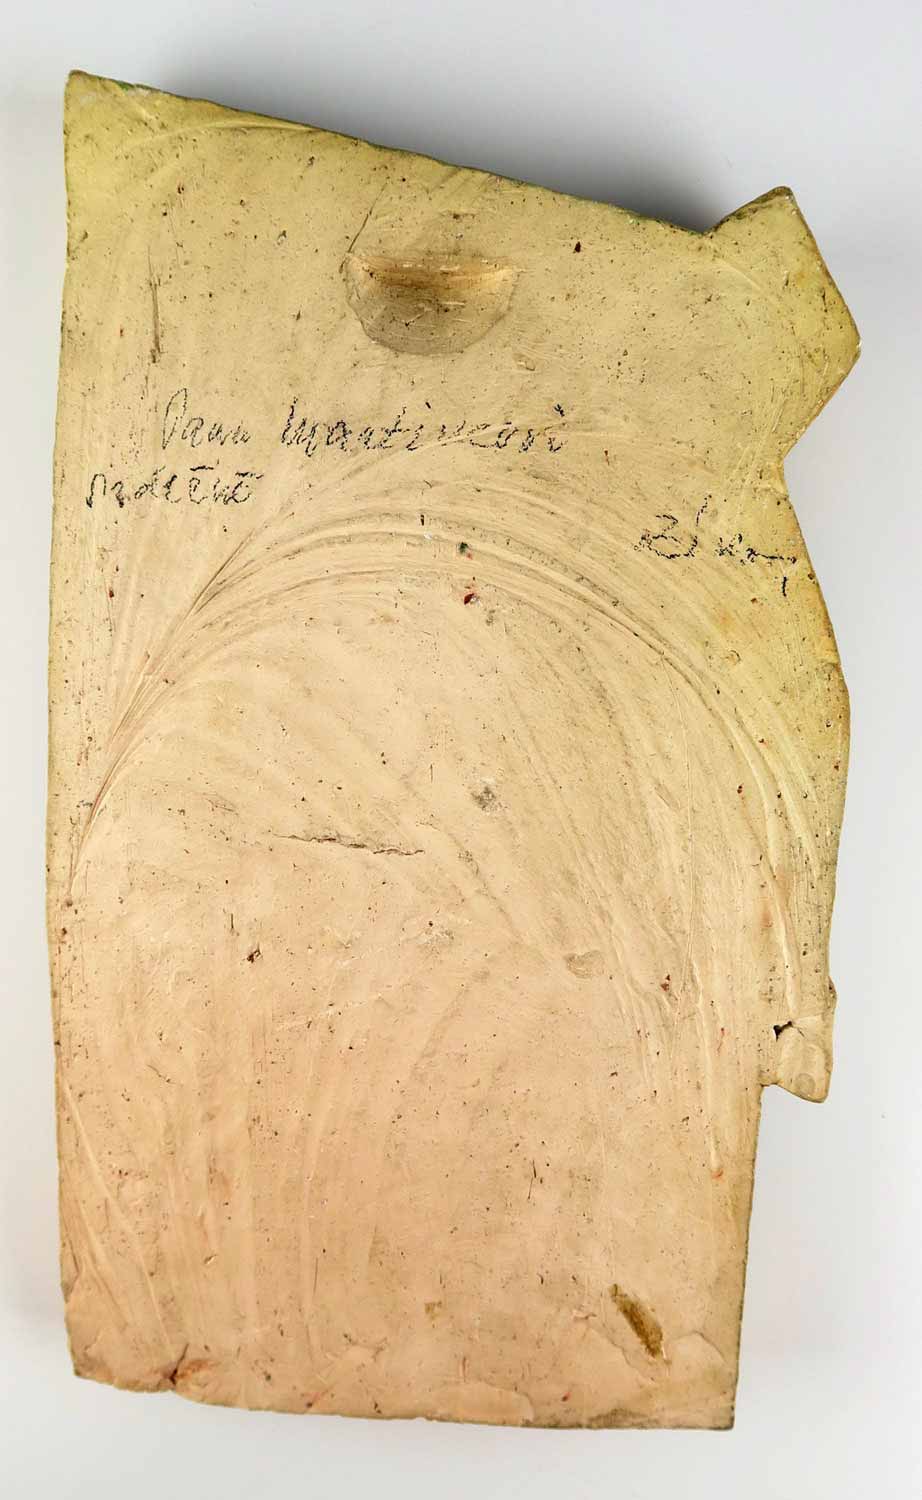 Panu Martincovi
srdečně